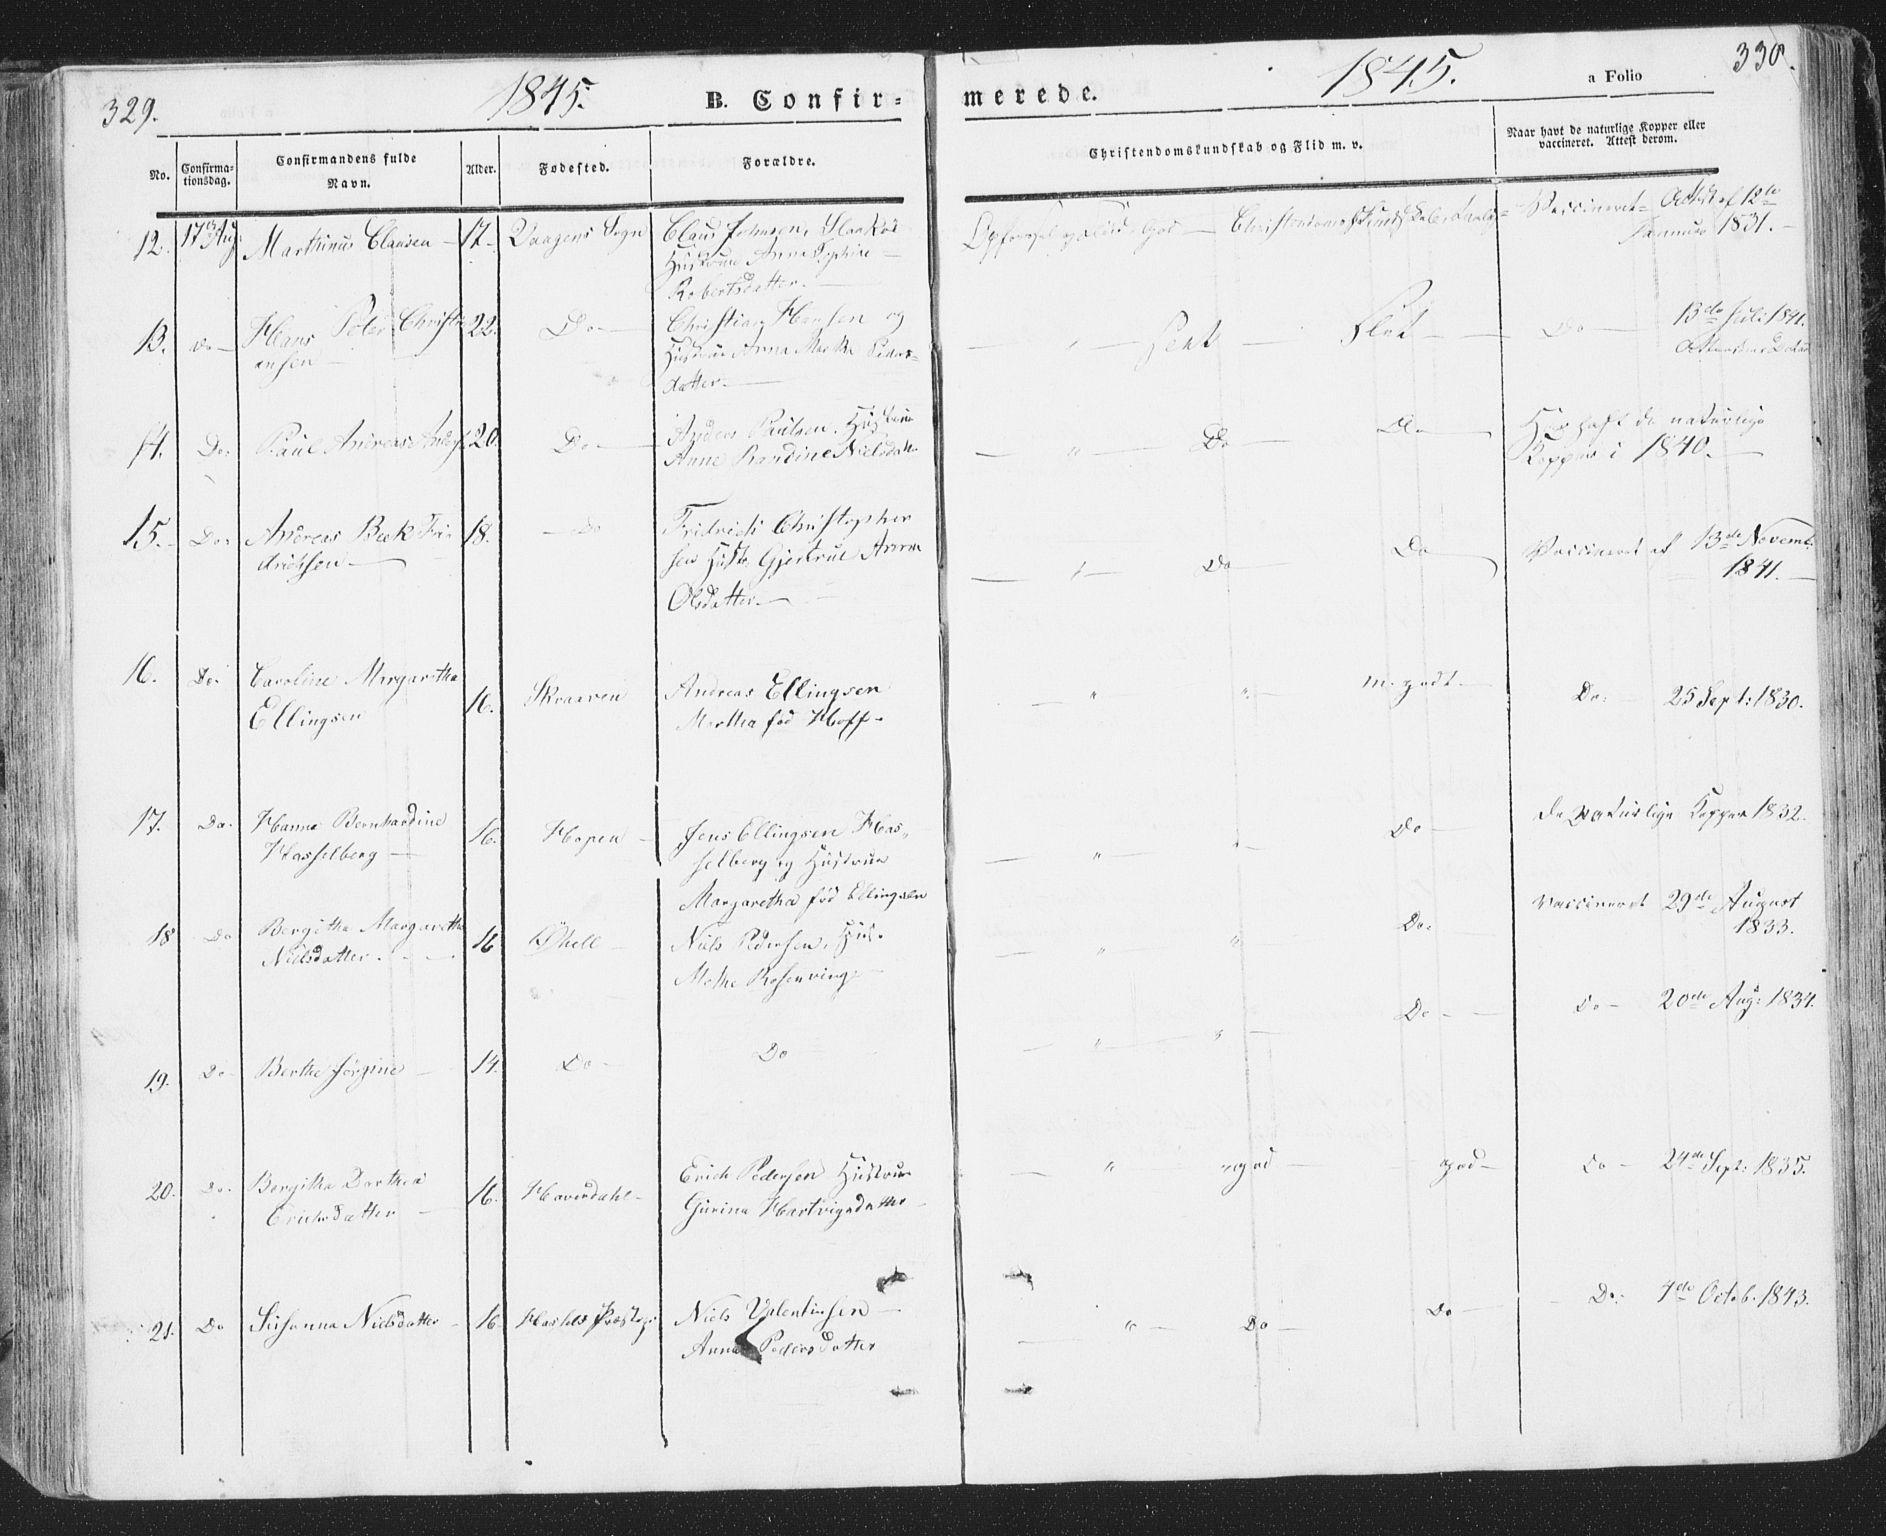 329.
1845.
B. Confir=
No.
Confirma-
tionsdag.
Confirmandens fulde
Navn.
Alder.
Fødested.
Forældre.
12. 17de Aug: Marthinus Clausen 17. Vaagens Sogn Claus Johnsen,
Hustrue Anna Sophie
Robertsdatter.
13. Do Hans Peter Christi 22. Do Christian Hansen og
ansen Hustrue Anna Martha Peders-
datter.
14. Do: Paul Andreas 20. Do Anders Paulsen, Hustrue
Anne Nielsdatter
15. Do: Andreas Beck Fri 18. Do Fridrich Christopher
drichsen sen Hustr. Gjertrul Anna
Olsdatter
16. Do: Caroline Margaretha 16. Skraaven Andreas Ellingsen
Ellingsen Martha fød Hoff.
17. Do: Hanna Bernhardine 16. Hopen Jens Ellingsen Has„
Hasselberg selberg og Hustrue
Margaretha fød Ellingsen
18 Do Bergitha Margaretha 16 Niels Pedersen, Hust.
Nielsdatter.
19. Do Berthe Jørgine 14. Do Do
20. Do: Bergitha Dorthea 16. Haversdahl Erich Pedersen Hustrue
Erichsdatter Gurina Hartvigsdatter
21. Do Susanna Nielsdatter 16. Niels Valentinsen
Anna Pedersdatter
merede.
1845.
a Folio
330.
Christendomskundskab og Flid m. v.
Naar havt de naturlige Kopper eller
vaccineret. Attest derom.
god Vaccineret Attest af 12te
Januar 1831.
Slet Do 13de Juli 1841.
Do Do Har haft de naturlige
Kopper i 1840.
Do Do Vaccineret af 13de Novemb.
1841.
„ „ m. godt Do: 25 Sept: 1830.
„ „ Do De Naturlige Kopper 1832.
„ „ Do: Vaccineret 29de August
1833.
„ „ Do Do 20de Aug: 1834.
„ „ god god Do 24de Sept: 1835.
„ Do Do Do: 4de Octob. 1843.